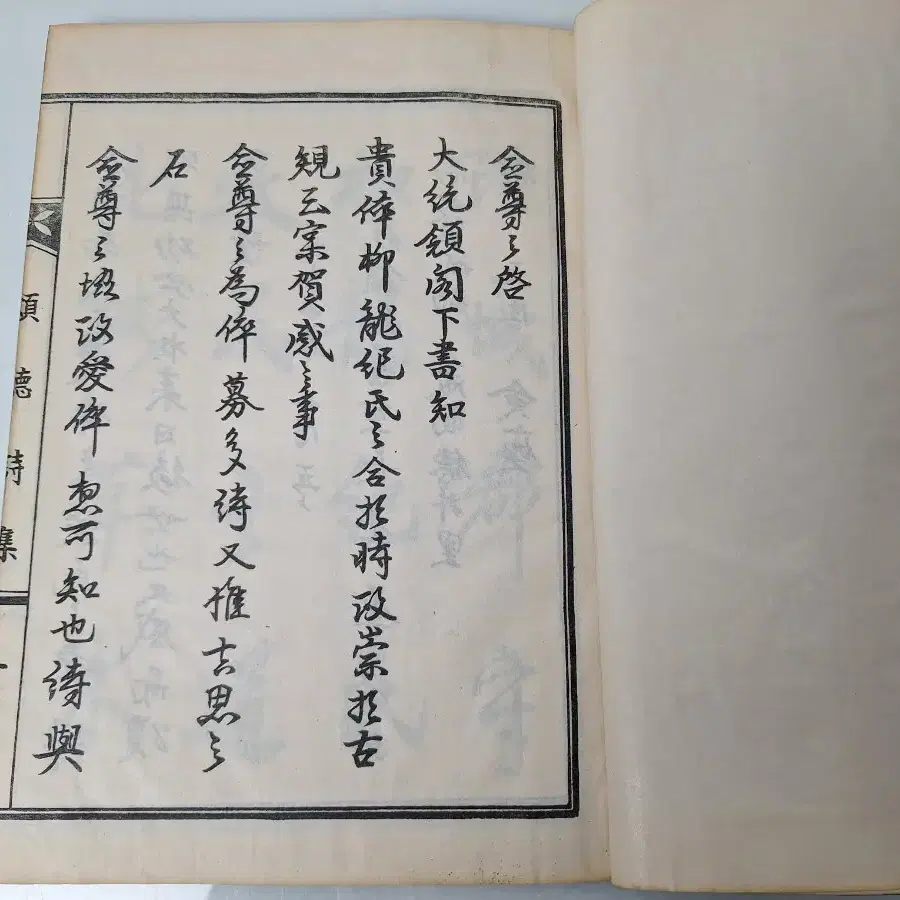 僉尊之啓
大統領閣下書知
貴倅柳龍紀氏之合於時政崇於古
規云寔賀感之事
僉尊之爲倅募多詩又推古思之
石
僉尊之政愛倅想可知也詩與
頌德詩集